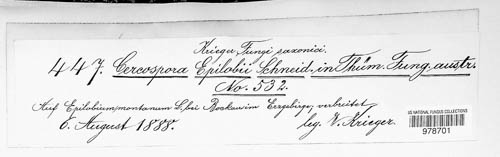 Krieger, Fungi saxonici.
447. Cercospora Epilobii Schneid. in Thüm. Fung. austr.
No. 532.
Auf Epilobium montanum L. bei Bockau im Erzgebirge, verbreitet
6. August 1888. leg. W. Krieger.
US NATIONAL FUNGUS COLLECTIONS
978701